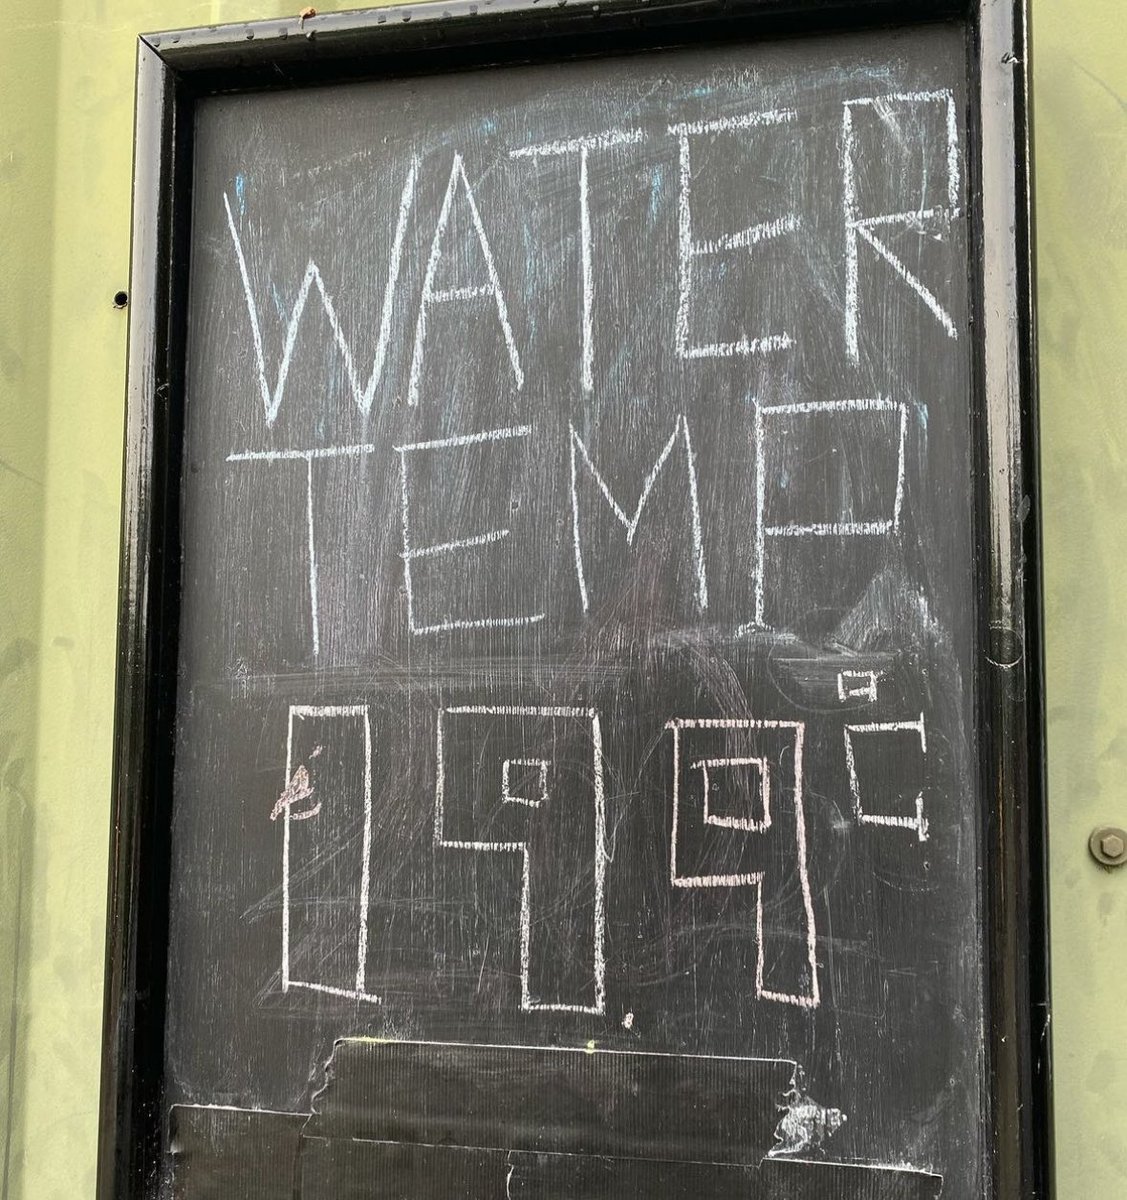 WATER
TEMP
19.9°C